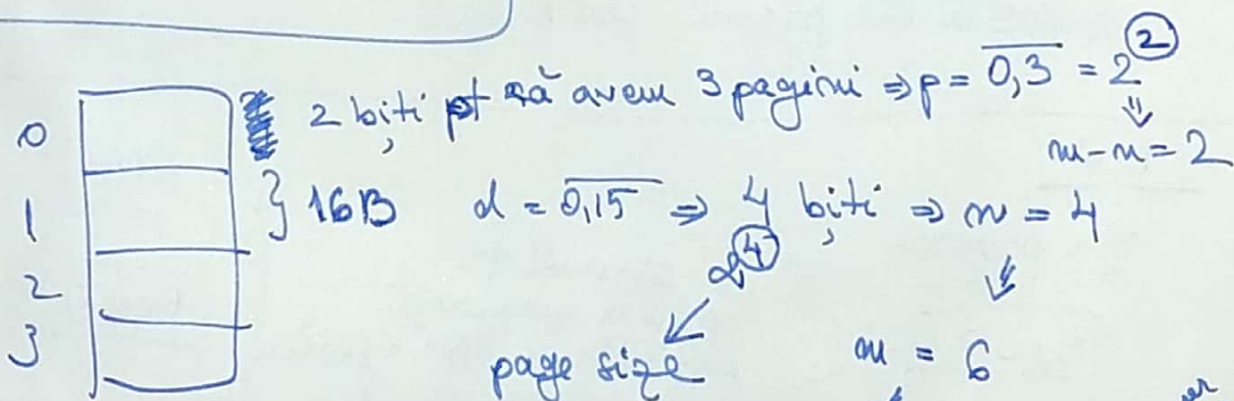 2 biți pt să avem 3 pagini ⇒ p = 0,3 = 2②
⇓
m-n = 2
0
1
2
3
} 16B d = 0,15 ⇒ 4 biți ⇒ n = 4
2④
page size
m = 6